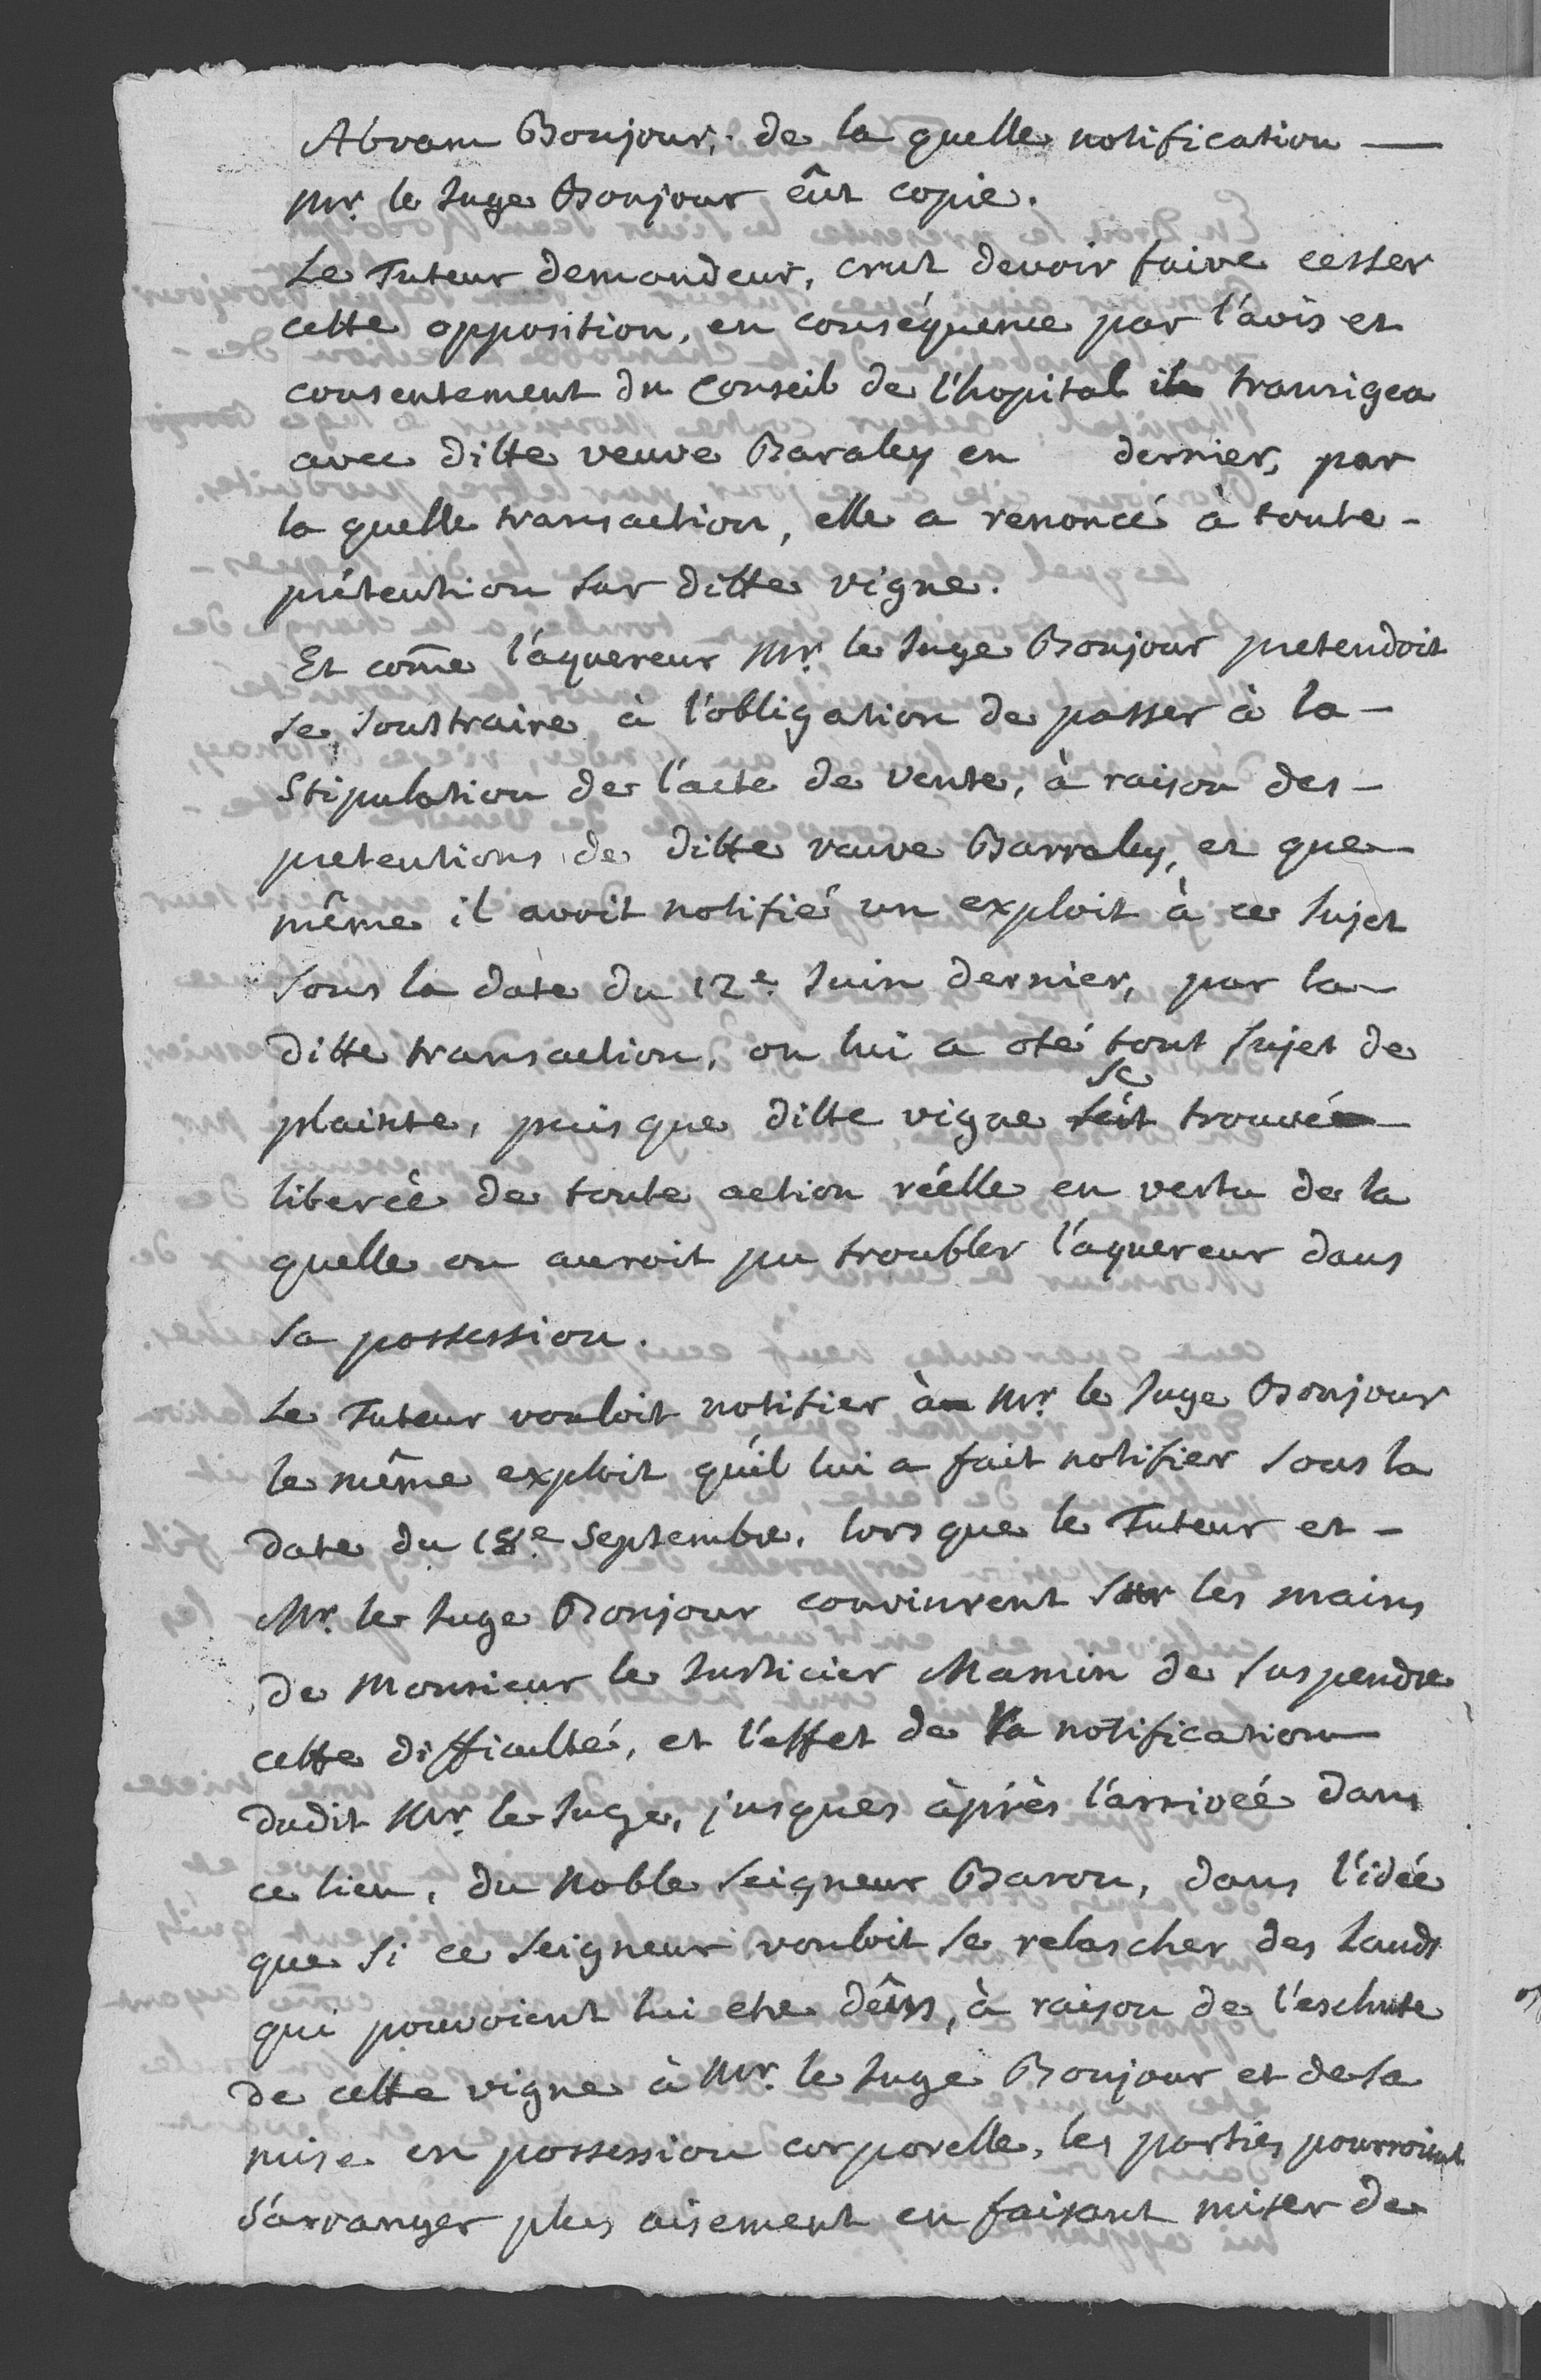 Abram Bonjour, de la quelle notification —
Mr. le Juge Bonjour eût copie.
Le Tuteur demandeur, crut devoir faire cesser
cette opposition, en conséquence par l'avis et
consentement du Conseil de l'hopital il transigea
avec ditte veuve Baraley en dernier, par
la quelle transaction, elle a renoncé à toute -
prétention sur ditte vigne.
Et come l'aquereur Mr. le Juge Bonjour pretendoit
se soustraire à l'obligation de passer à la -
Stipulation de l'acte de vente, à raison des -
pretentions de ditte veuve Barraley, et que
même il avoit notifié un exploit à ce sujet
sous la date du 12e. Juin dernier, par la
ditte transaction, on lui a oté tout sujet de
se
plainte, puis que ditte vigne trouve
liberée de toute action réelle en vertu de la
quelle on auroit pu troubler l'aquereur dans
sa possession.
Le Tuteur vouloit notifier à Mr. le Juge Bonjour
le même exploit qu'il lui a fait notifier sous la
date du 18e Septembre, lors que le Tuteur et -
Mr. le Juge Bonjour convinrent sur les mains
de Monsieur le Justicier Mamin de suspendre
cette difficulté, et l'effet de la notification
dudit Mr. le Juge, jusques àprès l'arrivée dans
ce lieu, du Noble Seigneur Baron, dans l'idée
que si ce Seigneur vouloit se relascher des Lauds
qui pouvoient lui etre dêus, à raison de l'eschute
de cette vigne à Mr. le Juge Bonjour et de sa
mise en possession corporelle, les parties pourroient
s'arranger plus aisement en faisant miser de